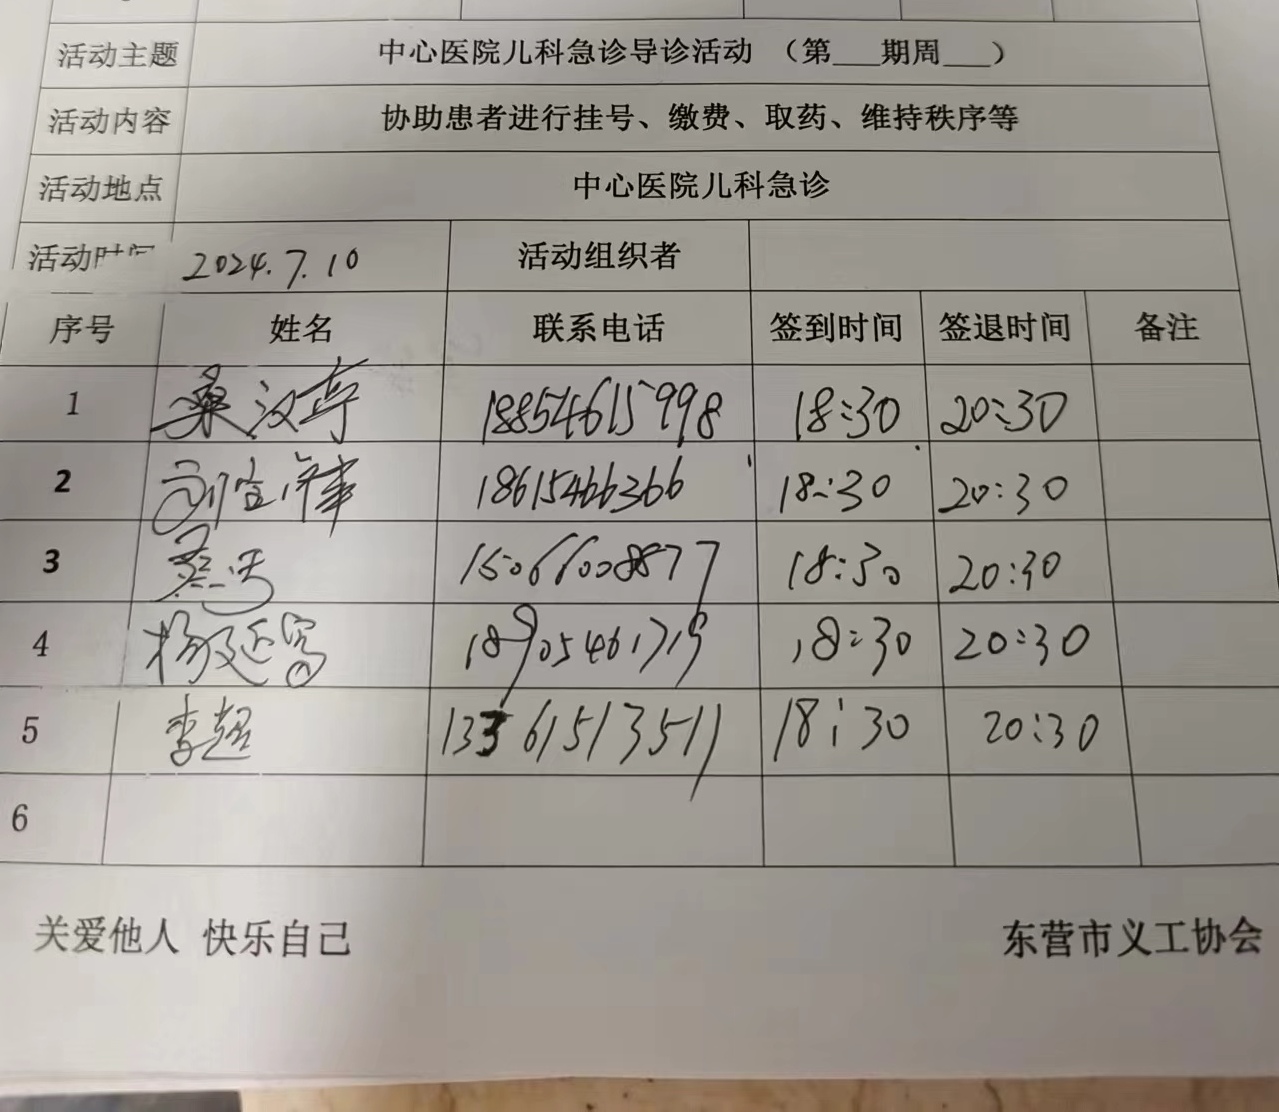 活动主题 中心医院儿科急诊导诊活动 （第___期周___）
活动内容 协助患者进行挂号、缴费、取药、维持秩序等
活动地点 中心医院儿科急诊
活动时间 2024.7.10 活动组织者
序号 姓名 联系电话 签到时间 签退时间 备注
1 桑汉亭 18854615998 18:30 20:30
2 18615466366 18:30 20:30
3 15066008877 18:30 20:30
4 杨延 18905461719 18:30 20:30
5 李超 13361513511 18:30 20:30
6
关爱他人 快乐自己 东营市义工协会